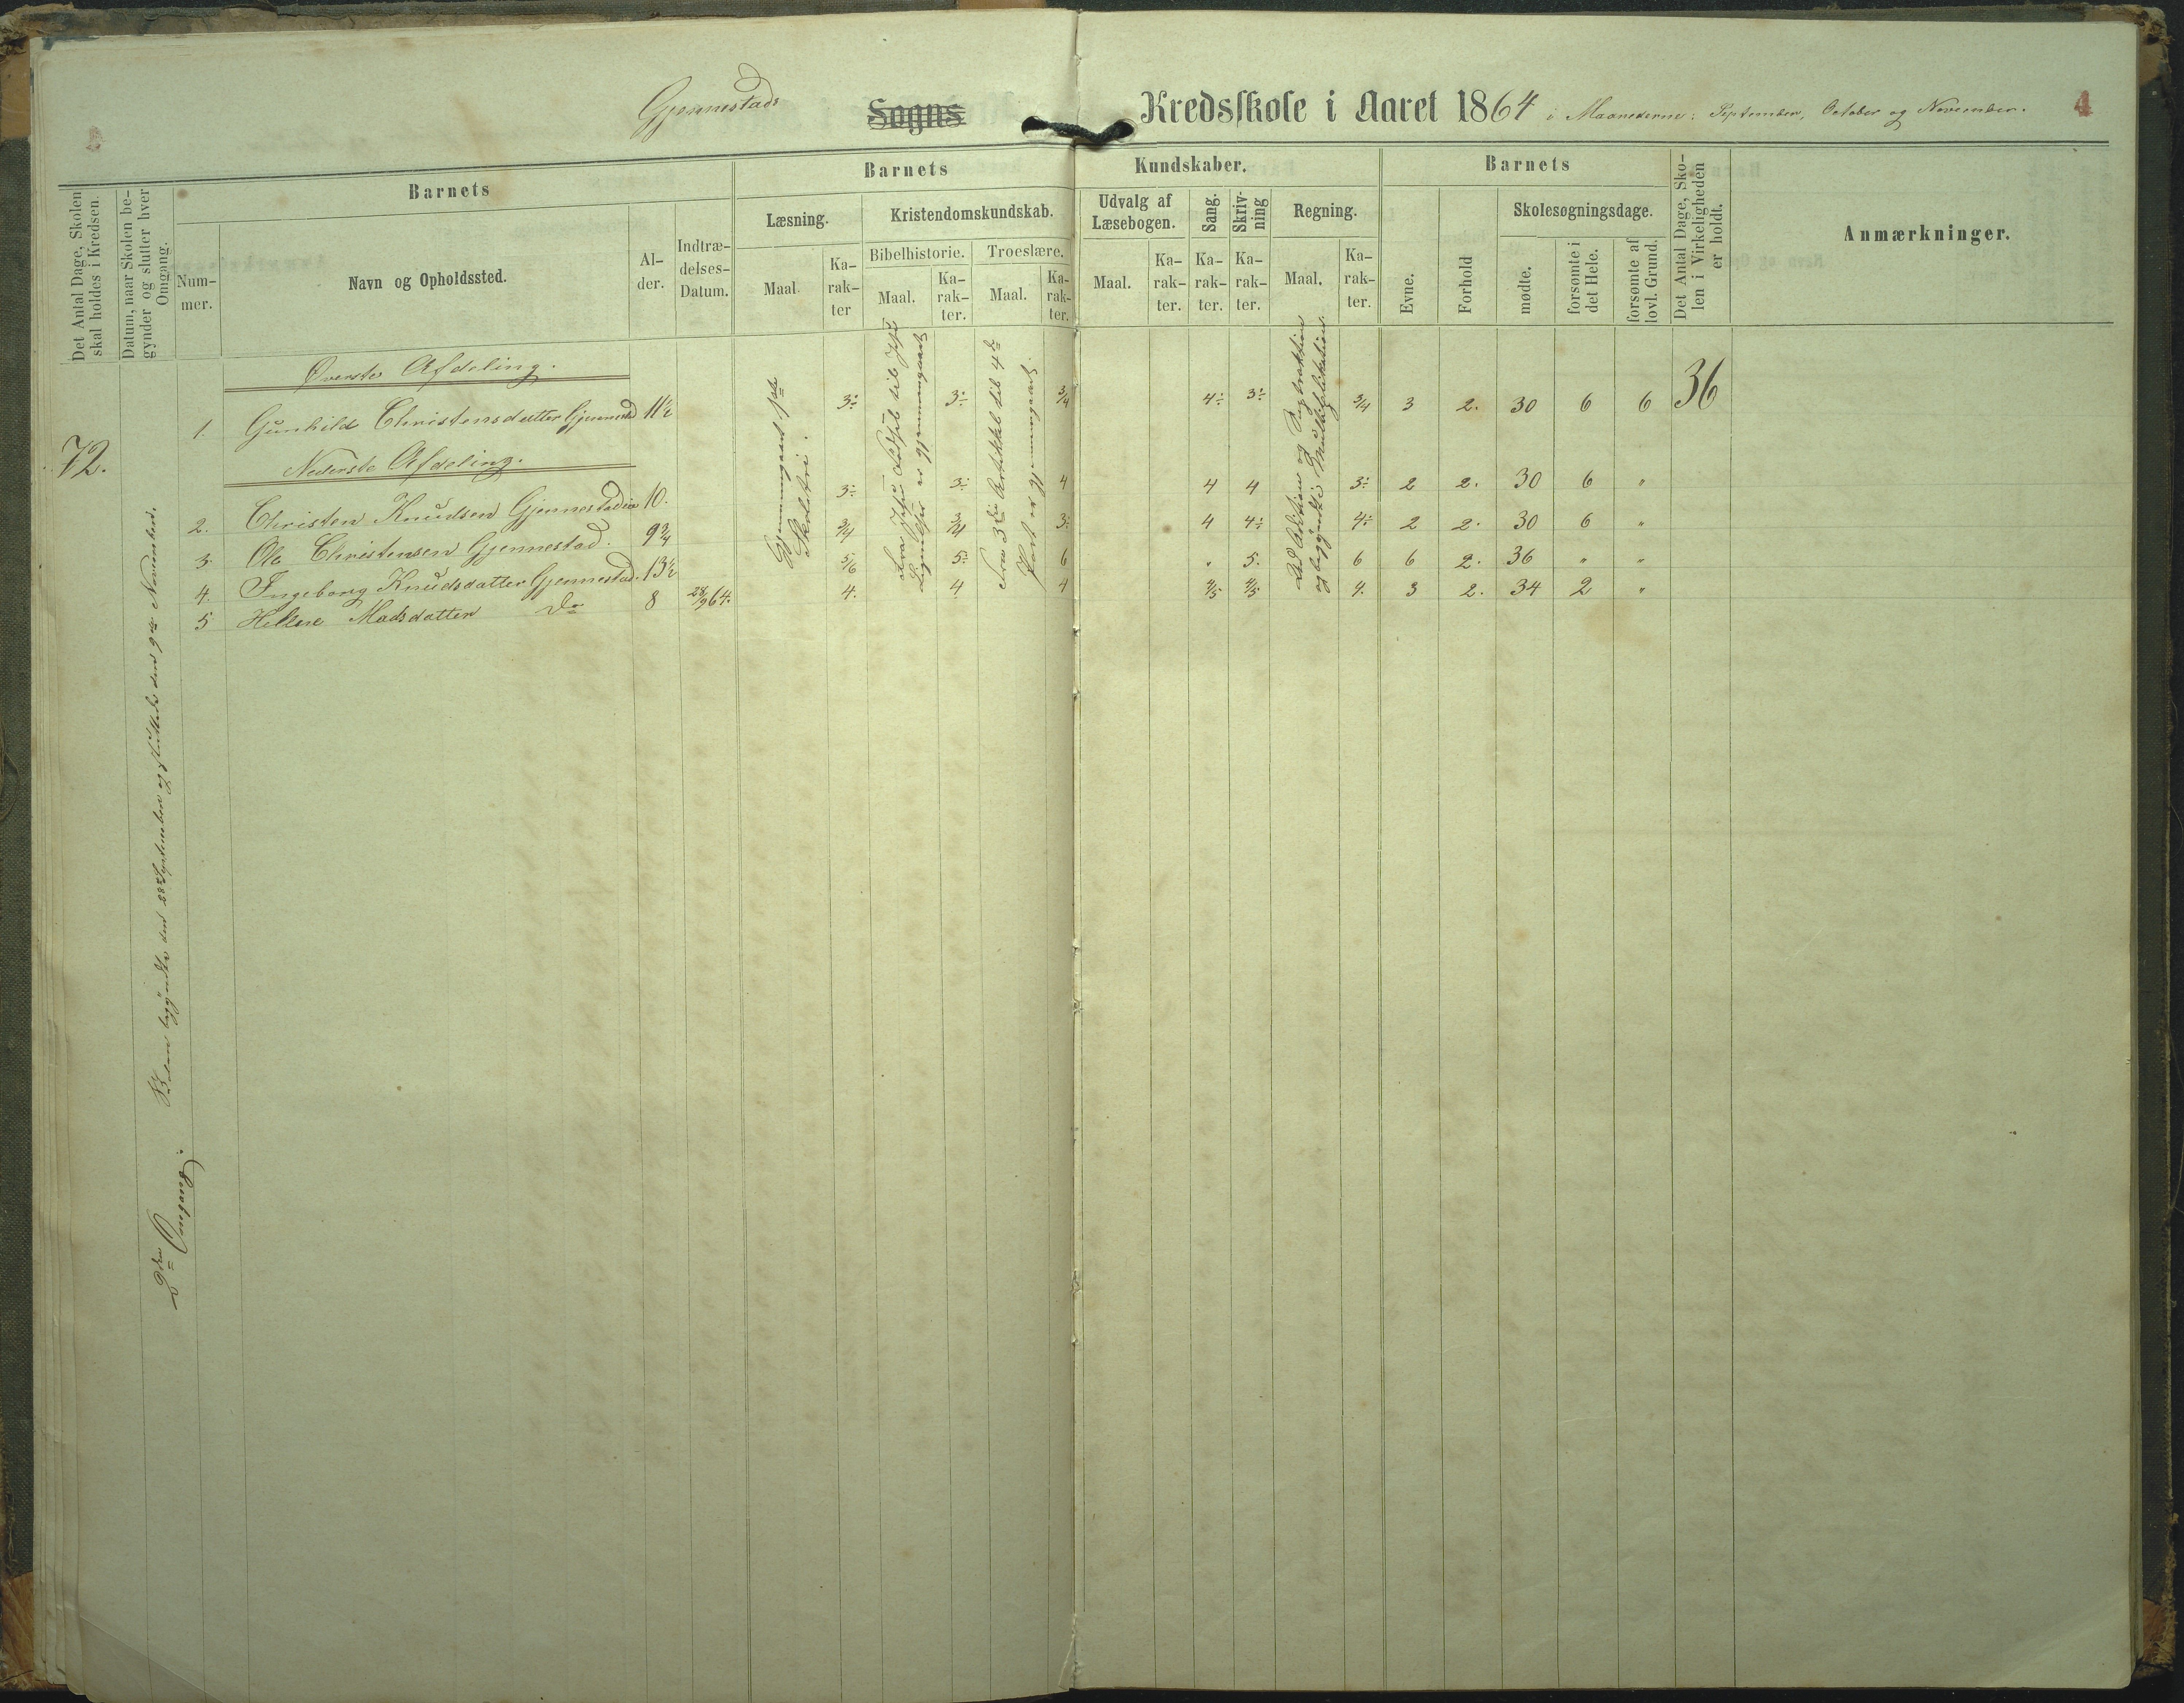 Gjennestads Sogns Kredsskole i Aaret 1864 i Maanederne: September, October og November. 4
Det Antal Dage, Skolen skal holdes i Kredsen.
Datum, naar Skolen begynder og slutter hver Omgang.
Barnets
Nummer.
Navn og Opholdssted.
Alder.
Indtrædelses-Datum.
Barnets Kundskaber.
Læsning.
Maal.
Karakter
Kristendomskundskab.
Bibelhistorie.
Maal.
Karakter.
Troeslære.
Maal.
Karakter.
Udvalg af Læsebogen.
Maal.
Karakter.
Sang.
Karakter.
Skrivning
Karakter.
Regning.
Maal.
Karakter.
Barnets
Evne.
Forhold
Skolesøgningsdage.
mødte.
forsømte i det Hele.
forsømte af lovl. Grund.
Det Antal Dage, Skolen i Virkeligheden er holdt.
Anmærkninger.
72.
2den Omgang.
Skolen begyndte den 28de September og sluttede den 9de November.
Øverste Afdeling.
1. Gunhild Christensdatter Gjennestad 11½ 3÷ 3÷ 3/4 4÷ 3÷ 3/4 3 2. 30 6 6 36
Nederste Afdeling.
2. Christen Knudsen Gjennestadeie 10. 3÷ 3÷ 4 4 4 3÷ 2 2. 30 6 "
3. Ole Christensen Gjennestad. 9¾ 3/4 3/4 3÷ 4 4÷ 4÷ 2 2. 30 6 "
4. Ingeborg Knudsdatter Gjennestad. 13½ 5/6 5÷ 6 " 5. 6 6 2. 36 " "
5 Hellene Madsdatter Do 8 28/9 64. 4. 4 4 4/5 4/5 4. 3 2. 34 2 "
Gjennemgaaet 1ste
Skoletri.
Fra Jesu Fødsel til Jesu
Lignelser er gjennemgaaet
Fra 3die Artikkel til 4de
Part er gjennemgaaet.
Lært Addition og Subtraktion
og begyndt i Multiplikation.